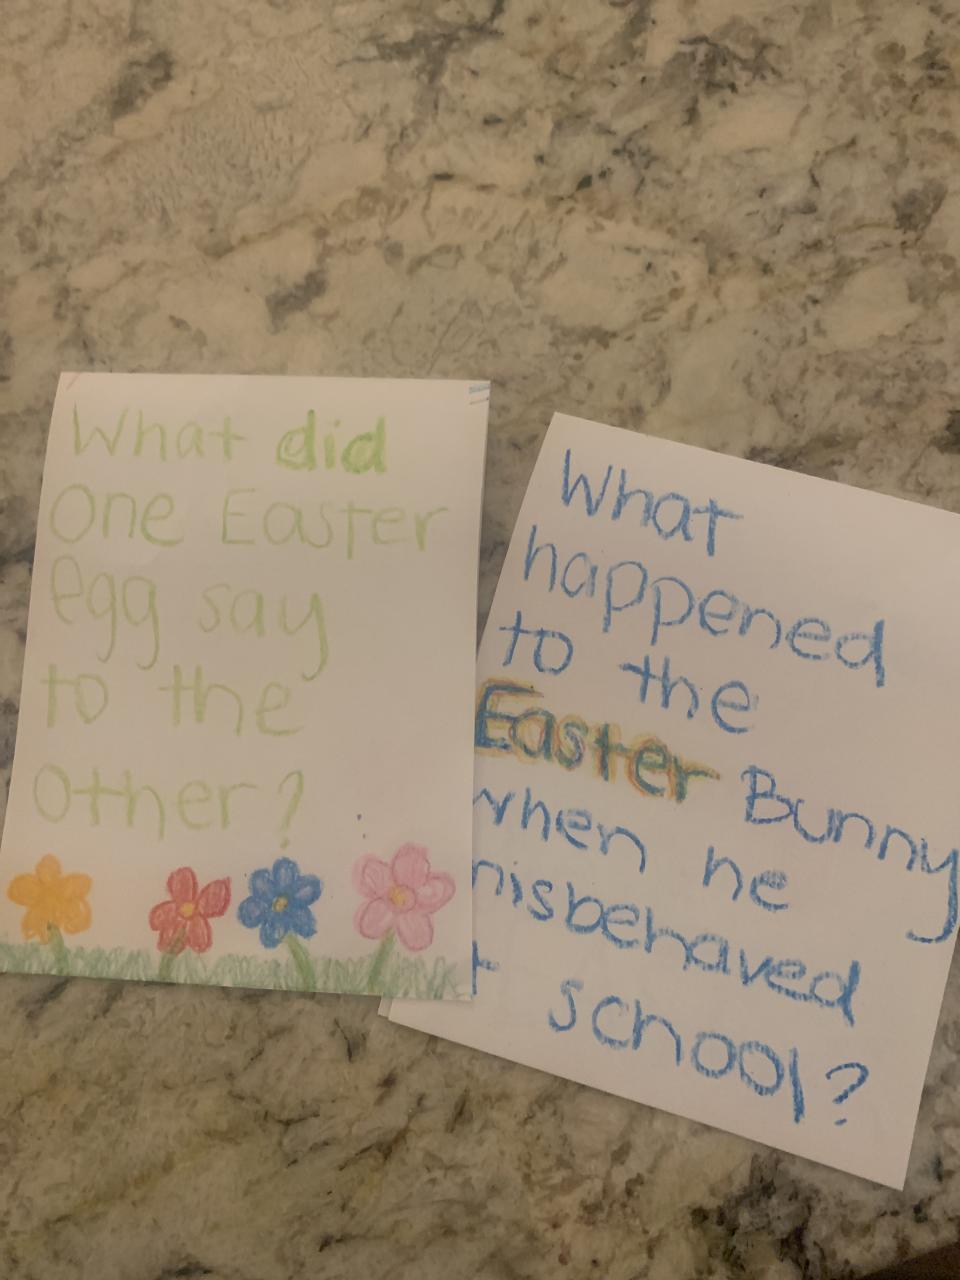 What did
One Easter
egg say
to the
other?
What
happened
to the
Easter Bunny
when he
misbehaved
school?